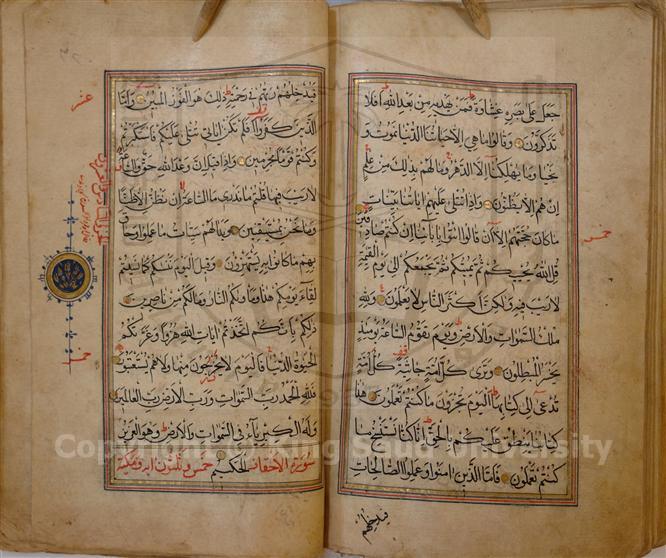 جعل على بصره غشاوة فمن يهديه من بعد الله افلا
تذكرون وقالوا ما هي الا حياتنا الدنيا نموت و
نحيا وما يهلكنا الا الدهر وما لهم بذلك من علم
ان هم الا يظنون واذا تتلى عليهم اياتنا بينات
ما كان حجتهم الا ان قالوا ائتوا باباءنا ان كنتم صادقين
قل الله يحييكم ثم يميتكم ثم يجمعكم الى يوم القيمة
لا ريب فيه ولكن اكثر الناس لا يعلمون ولله
ملك السموات والارض ويوم تقوم الساعة يومئذ
يخسر المبطلون وترى كل امة جاثية كل امة
تدعى الى كتابها اليوم تجزون ما كنتم تعملون هذا
كتابنا ينطق عليكم بالحق انا كنا نستنسخ ما
كنتم تعملون فاما الذين امنوا وعملوا الصالحات
فيدخلهم
خمس
فيدخلهم ربهم في رحمته ذلك هو الفوز المبين واما
الذين كفروا افلم تكن اياتي تتلى عليكم فاستكبرتم
وكنتم قوما مجرمين واذا قيل ان وعد الله حق والساعة
لا ريب فيها قلتم ما ندري ما الساعة ان نظن الا ظنا
وما نحن بمستيقنين وبدا لهم سيئات ما عملوا وحاق
بهم ما كانوا به يستهزؤن وقيل اليوم ننسكم كما نسيتم
لقاء يومكم هذا وماويكم النار وما لكم من ناصرين
ذلكم بانكم اتخذتم ايات الله هزوا وغرتكم
الحيوة الدنيا فاليوم لا يخرجون منها ولا هم يستعتبون
فلله الحمد رب السموات ورب الارض رب العالمين
وله الكبرياء في السموات والارض وهو العزيز
الحكيم سورة الاحقاف خمس وثلثون اية مكية
عشر
Copyright © King Saud University